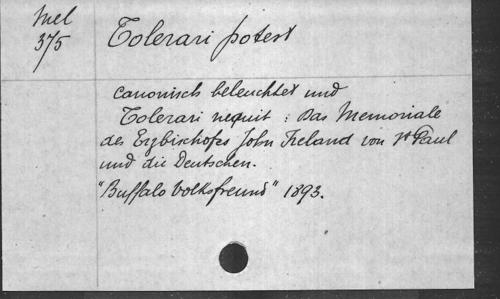 Mel
375
Tolerari potest
canonisch beleuchtet und
Tolerari nequit : Das Memoriale
des Erzbischofes John Ireland von St Paul
und die Deutschen.
"Buffalo Volksfreund" 1893.